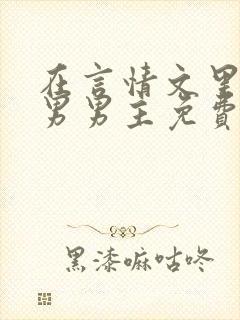 在言情文里
男男主免費
黑漆嘛咕咚